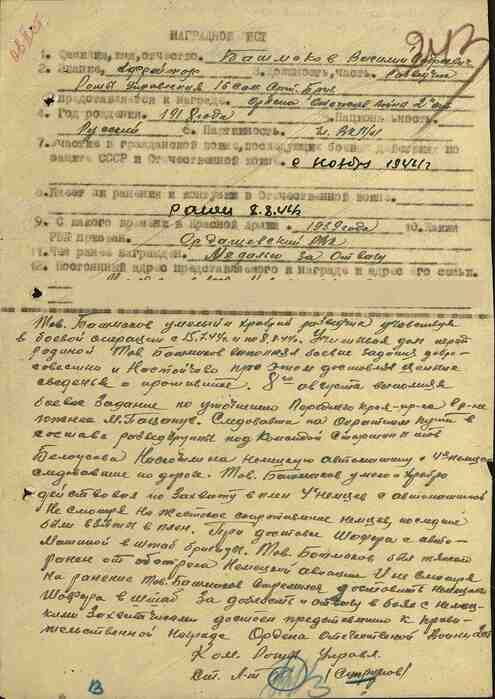 НАГРАДНОЙ ЛИСТ
1. Фамилия, имя, отчество. Башмаков Василий
2. Звание. ефрейтор 3. Должность, часть. Разведчик
Роты Управления 16
Представляется к награде. Ордена Отечест. войны 2
4. Год рождения. 1918 года 5. Национальность.
Русский 6. Партийность. ВКП/б/
7. Участие в гражданской войне, последующих боевых действиях по
защите СССР и Отечественной войне. с ноября 1941 г
8. Имеет ли ранения и контузии в Отечественной войне.
Ранен 8.8.44
9. С какого времени в Красной Армии. 1939 года 10. Каким
РВК призван. РВК
11. Чем ранее награжден. Медалью За Отвагу
12. Постоянный адрес представляемого к награде и адрес его семьи.
Тов. Башмаков умелый и храбрый разведчик участвуя
в боевой операции с 15.7.44 г. и по 8.8.44 г.
родиной Тов. Башмаков выполнял боевые задания добро-
совестно и настойчиво при этом доставлял ценные
сведенья о противнике. 8го августа выполняя
боевое задание по уточнению Переднего края пр-ка в р-не
южнее М. Следовавший по обратном пути в
составе разведгруппы под командой Старшины тов
Белоусова Наскочили на немецкую автомашину с 4я немцами
следовавшие по дороге. Тов. Башмаков умело и храбро
действовал по захвату в плен 4 немцев с автомашиной
Не смотря на жестокое сопротивление немцев, последние
были взяты в плен. При доставке Шофера с авто-
машиной в штаб бригады. Тов. Башмаков был тяжело
ранен от обстрела немецкой авиации И не смотря
на ранение Тов. Башмаков стремился доставить немецкого
Шофера в штаб За доблесть и отвагу в боях с немец-
кими захватчиками достоин представлению к прави-
тельственной награде Ордена Отечественной Войны 2
Ком. Роты Управл.
Ст. Л-т